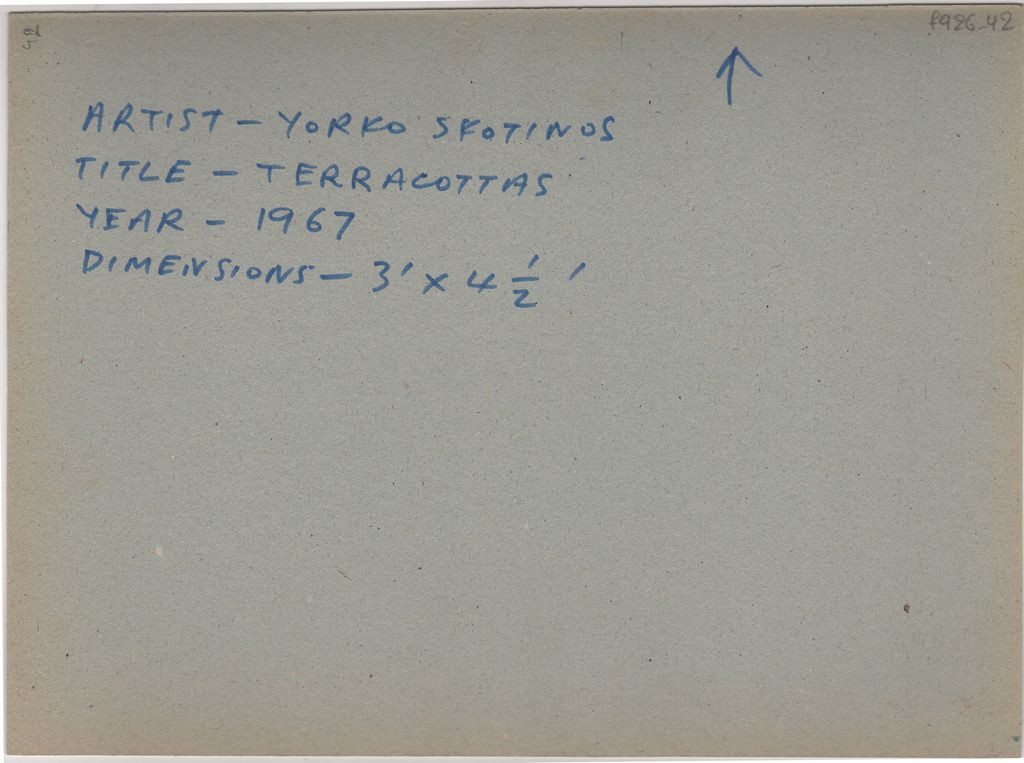 f986_42
42
ARTIST - YORKO SKOTINOS
TITLE - TERRACOTTAS
YEAR - 1967
DIMENSIONS - 3' x 4 1/2 '